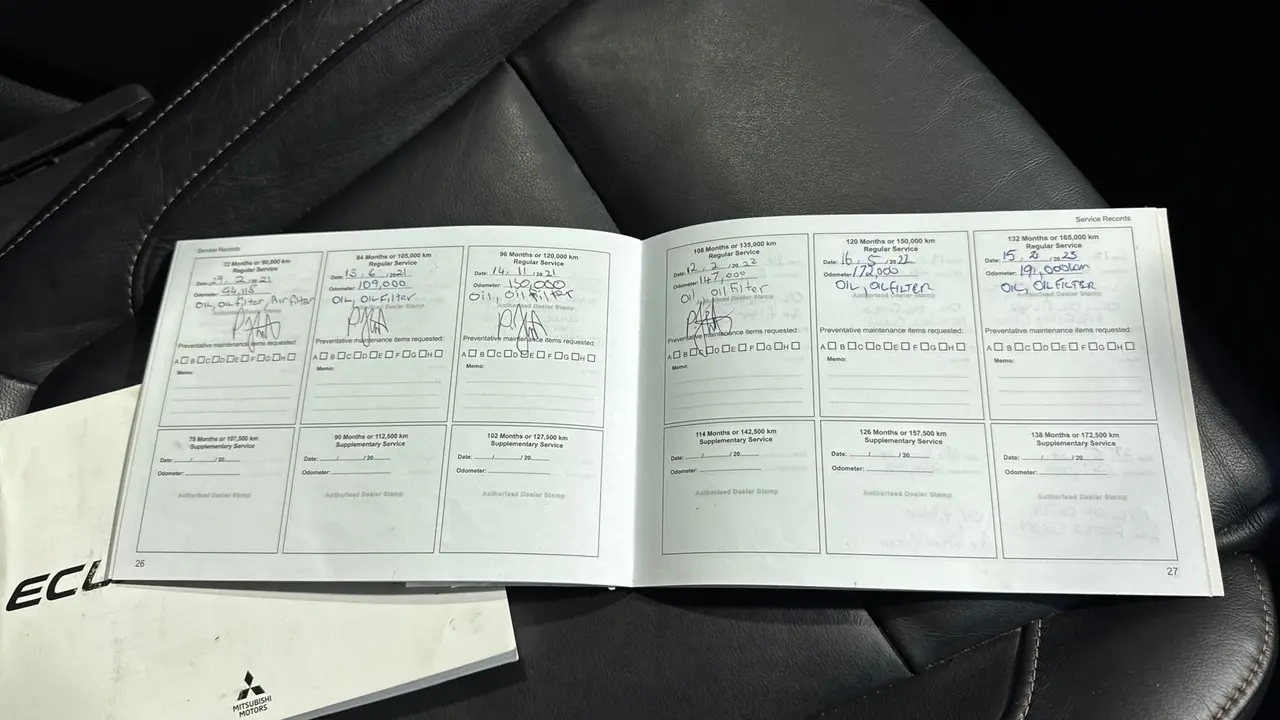 Service Records
72 Months or 90,000 km
Regular Service
Date: 2 / 20 21
Odometer:
OIL, OilFilter AirFilter
Preventative maintenance items requested:
A B C D E F G H
Memo:
84 Months or 105,000 km
Regular Service
Date: 15 / 6 / 20 21
Odometer: 109,000
OIL, OilFilter
Authorised Dealer Stamp
Preventative maintenance items requested:
A B C D E F G H
Memo:
96 Months or 120,000 km
Regular Service
Date: 14 / 11 / 20 21
Odometer: 130,000
Oil, Oil Filter
Authorised Dealer Stamp
Preventative maintenance items requested:
A B C D E F G H
Memo:
78 Months or 97,500 km
Supplementary Service
Date: / / 20
Odometer:
Authorised Dealer Stamp
90 Months or 112,500 km
Supplementary Service
Date: / / 20
Odometer:
Authorised Dealer Stamp
102 Months or 127,500 km
Supplementary Service
Date: / / 20
Odometer:
Authorised Dealer Stamp
26
Service Records
108 Months or 135,000 km
Regular Service
Date: 12 / 2 / 20 22
Odometer: 147,000
Oil, Oil Filter
Authorised Dealer Stamp
Preventative maintenance items requested:
A B C D E F G H
Memo:
120 Months or 150,000 km
Regular Service
Date: 16 / 5 / 20 22
Odometer: 172,000
OIL, OILFILTER
Authorised Dealer Stamp
Preventative maintenance items requested:
A B C D E F G H
Memo:
132 Months or 165,000 km
Regular Service
Date: 15 / 2 / 20 23
Odometer: 191,000km
OIL, OILFILTER
Authorised Dealer Stamp
Preventative maintenance items requested:
A B C D E F G H
Memo:
114 Months or 142,500 km
Supplementary Service
Date: / / 20
Odometer:
Authorised Dealer Stamp
126 Months or 157,500 km
Supplementary Service
Date: / / 20
Odometer:
Authorised Dealer Stamp
138 Months or 172,500 km
Supplementary Service
Date: / / 20
Odometer:
Authorised Dealer Stamp
27
ECL
MITSUBISHI
MOTORS